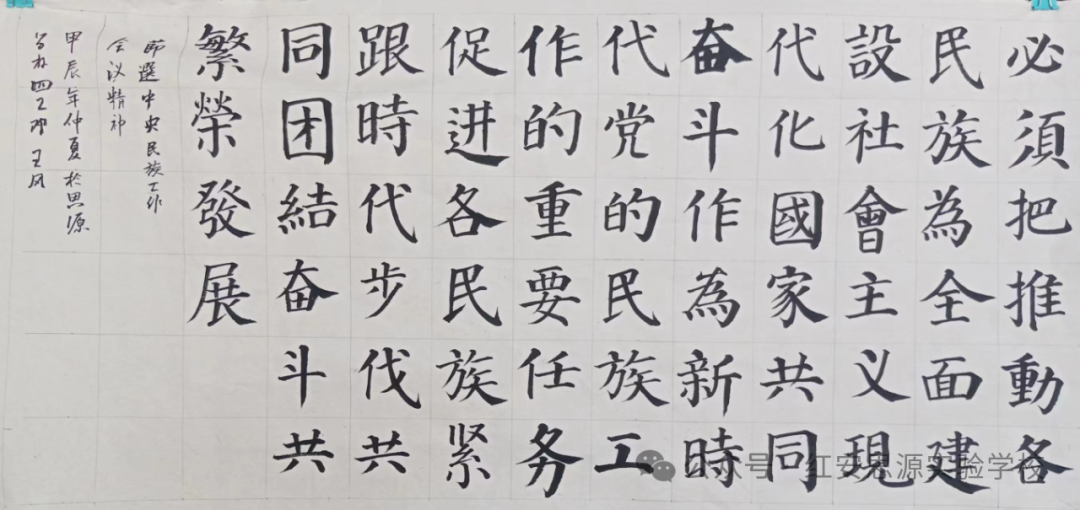 必須把推動各
民族為全面建
設社會主义現
代化國家共同
奋斗作為新時
代党的民族工
作的重要任务
促进各民族紧
跟時代步伐共
同团結奋斗共
繁榮發展
節選中央民族工作
会议精神
甲辰年仲夏於思源
王风
公众号·红安思源实验学校